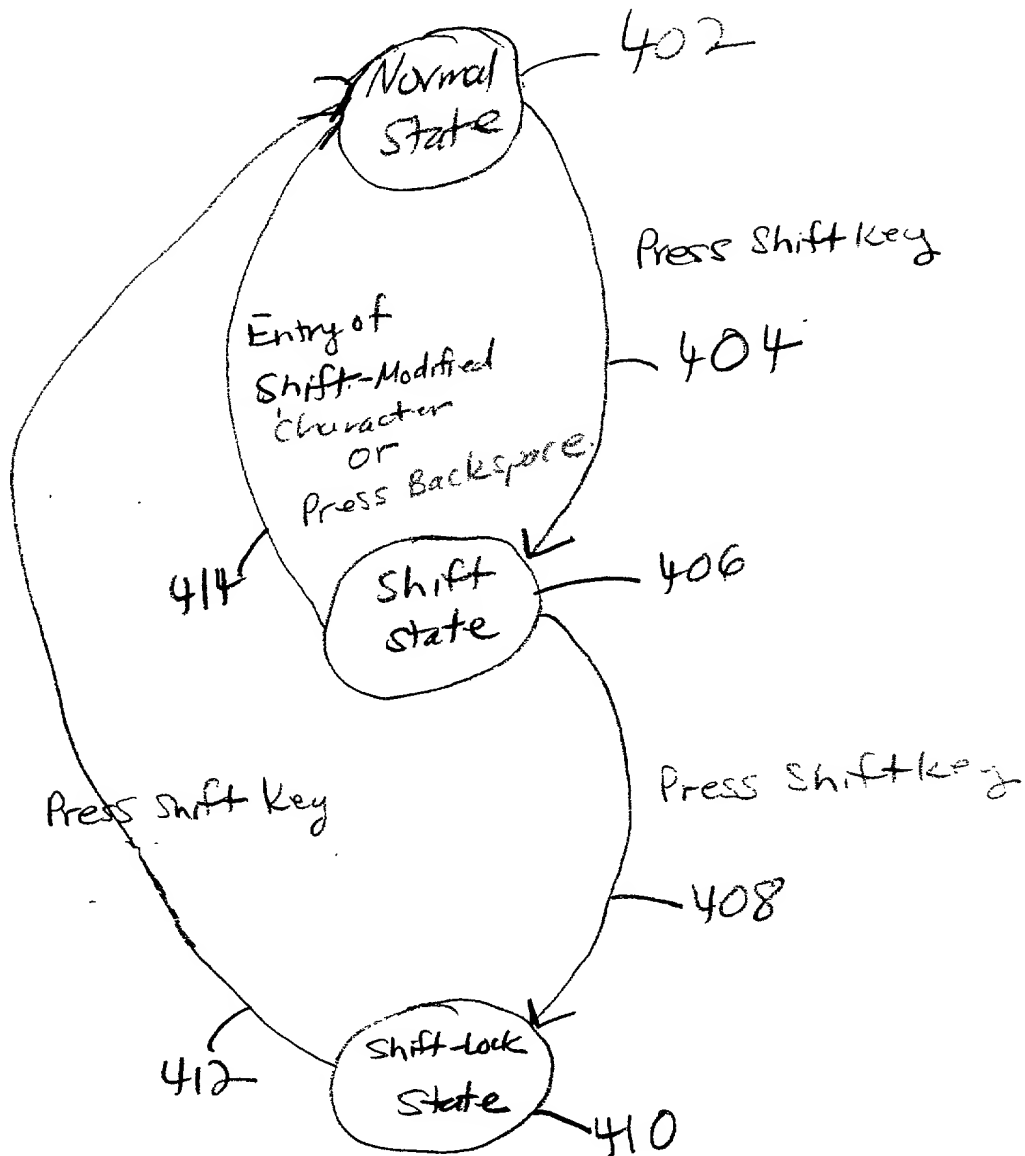 402
Normal
State
Press Shift Key
404
Entry of
Shift-Modified
Character
or
Press Backspace
406
414
Shift
State
Press Shift Key
Press Shift Key
408
412
Shift-Lock
State
410